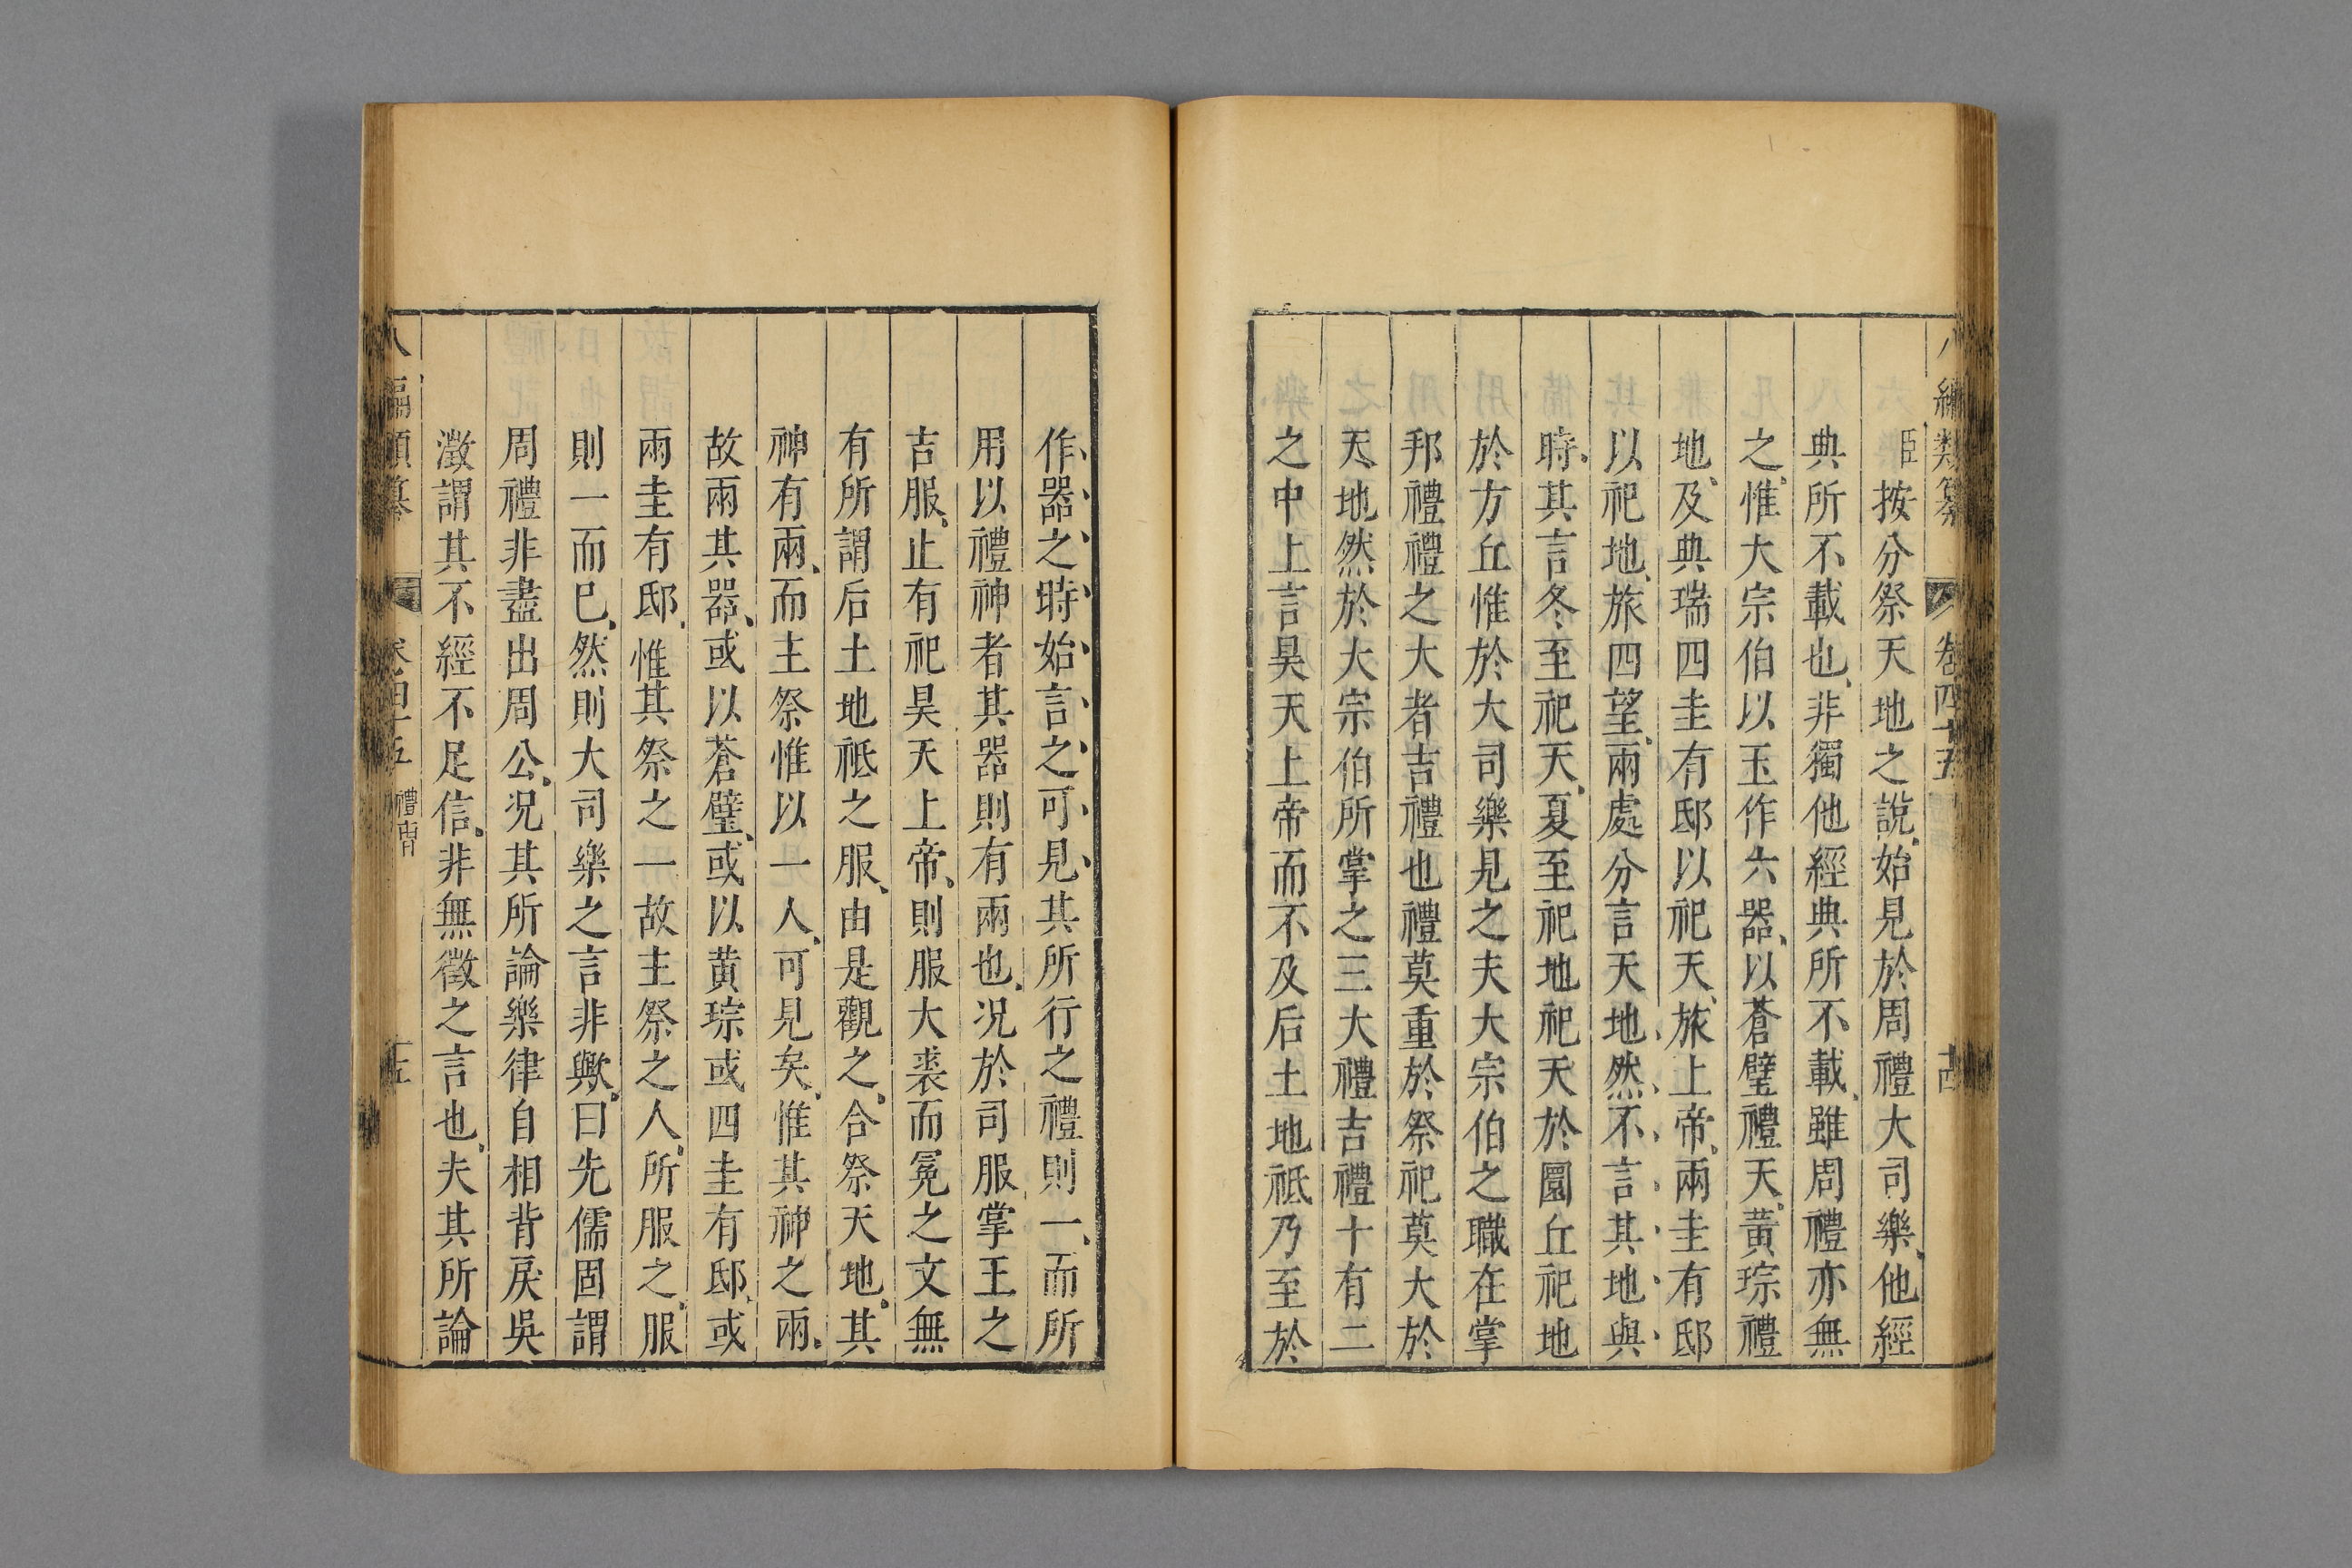 編類纂 卷四十五 十四
臣按分祭天地之說始見於周禮大司樂他經
典所不載也非獨他經典所不載雖周禮亦無
之惟大宗伯以玉作六器以蒼璧禮天黃琮禮
地及典瑞四圭有邸以祀天旅上帝兩圭有邸
以祀地旅四望兩處分言天地然不言其地與
時其言冬至祀天夏至祀地祀天於圜丘祀地
於方丘惟於大司樂見之夫大宗伯之職在掌
邦禮禮之大者吉禮也禮莫重於祭祀莫大於
天地然於大宗伯所掌之三大禮吉禮十有二
之中上言昊天上帝而不及后土地祇乃至於
作器之時始言之可見其所行之禮則一而所
用以禮神者其器則有兩也况於司服掌王之
吉服止有祀昊天上帝則服大裘而冕之文無
有所謂后土地祇之服由是觀之合祭天地其
神有兩而主祭惟以一人可見矣惟其神之兩
故兩其器或以蒼璧或以黄琮或四圭有邸或
兩圭有邸惟其祭之一故主祭之人所服之服
則一而已然則大司樂之言非歟曰先儒固謂
周禮非盡出周公况其所論樂律自相背戾吳
澂謂其不經不足信非無徵之言也夫其所論
八編類纂 卷四十五 禮 十五